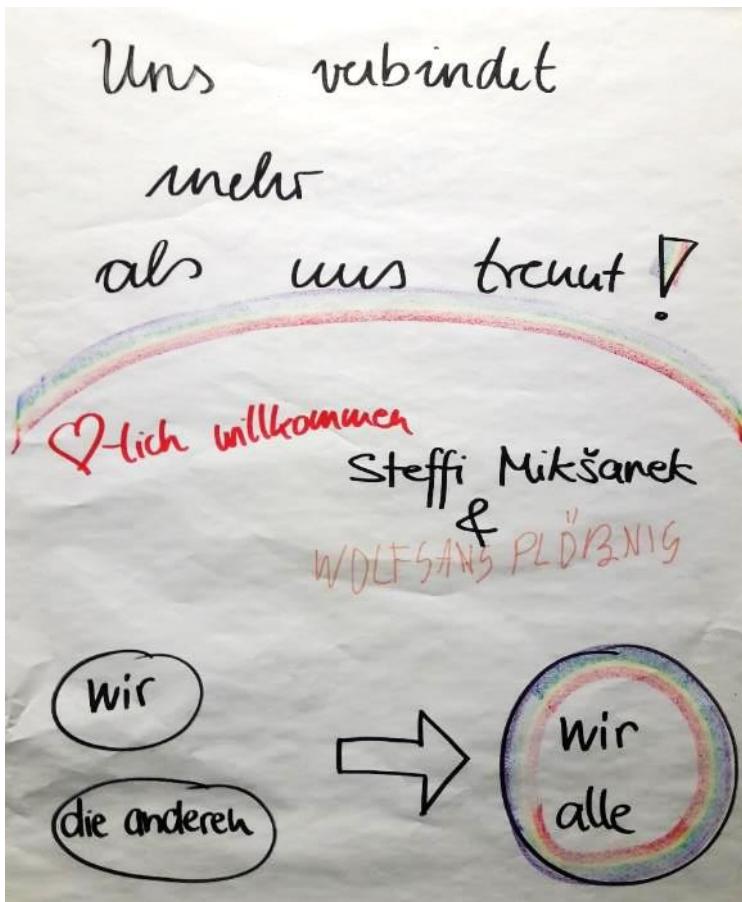 Uns verbindet
mehr
als uns trennt!
♡-lich willkommen
Steffi Mikšanek
&
WOLFGANG PLÖßNIG
wir
die anderen
wir
alle